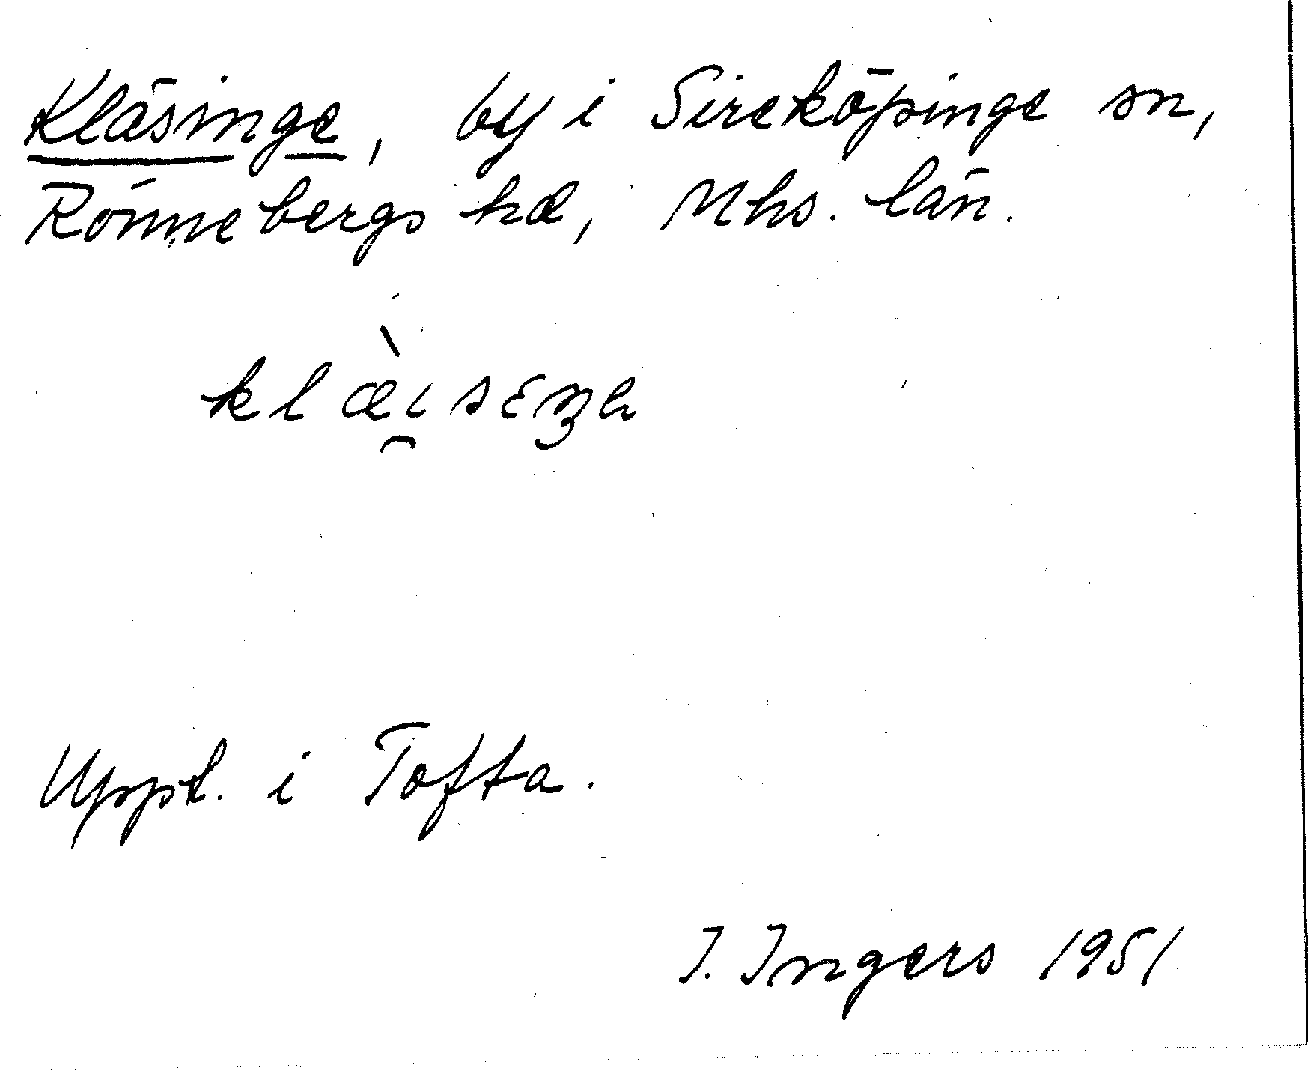 Kläsinge, by i Sireköpinge sn,
Rönnebergs hd, Mhs. län.
klæ̀i̯sɛŋɐ
Uppt. i Tofta.
I. Ingers 1951